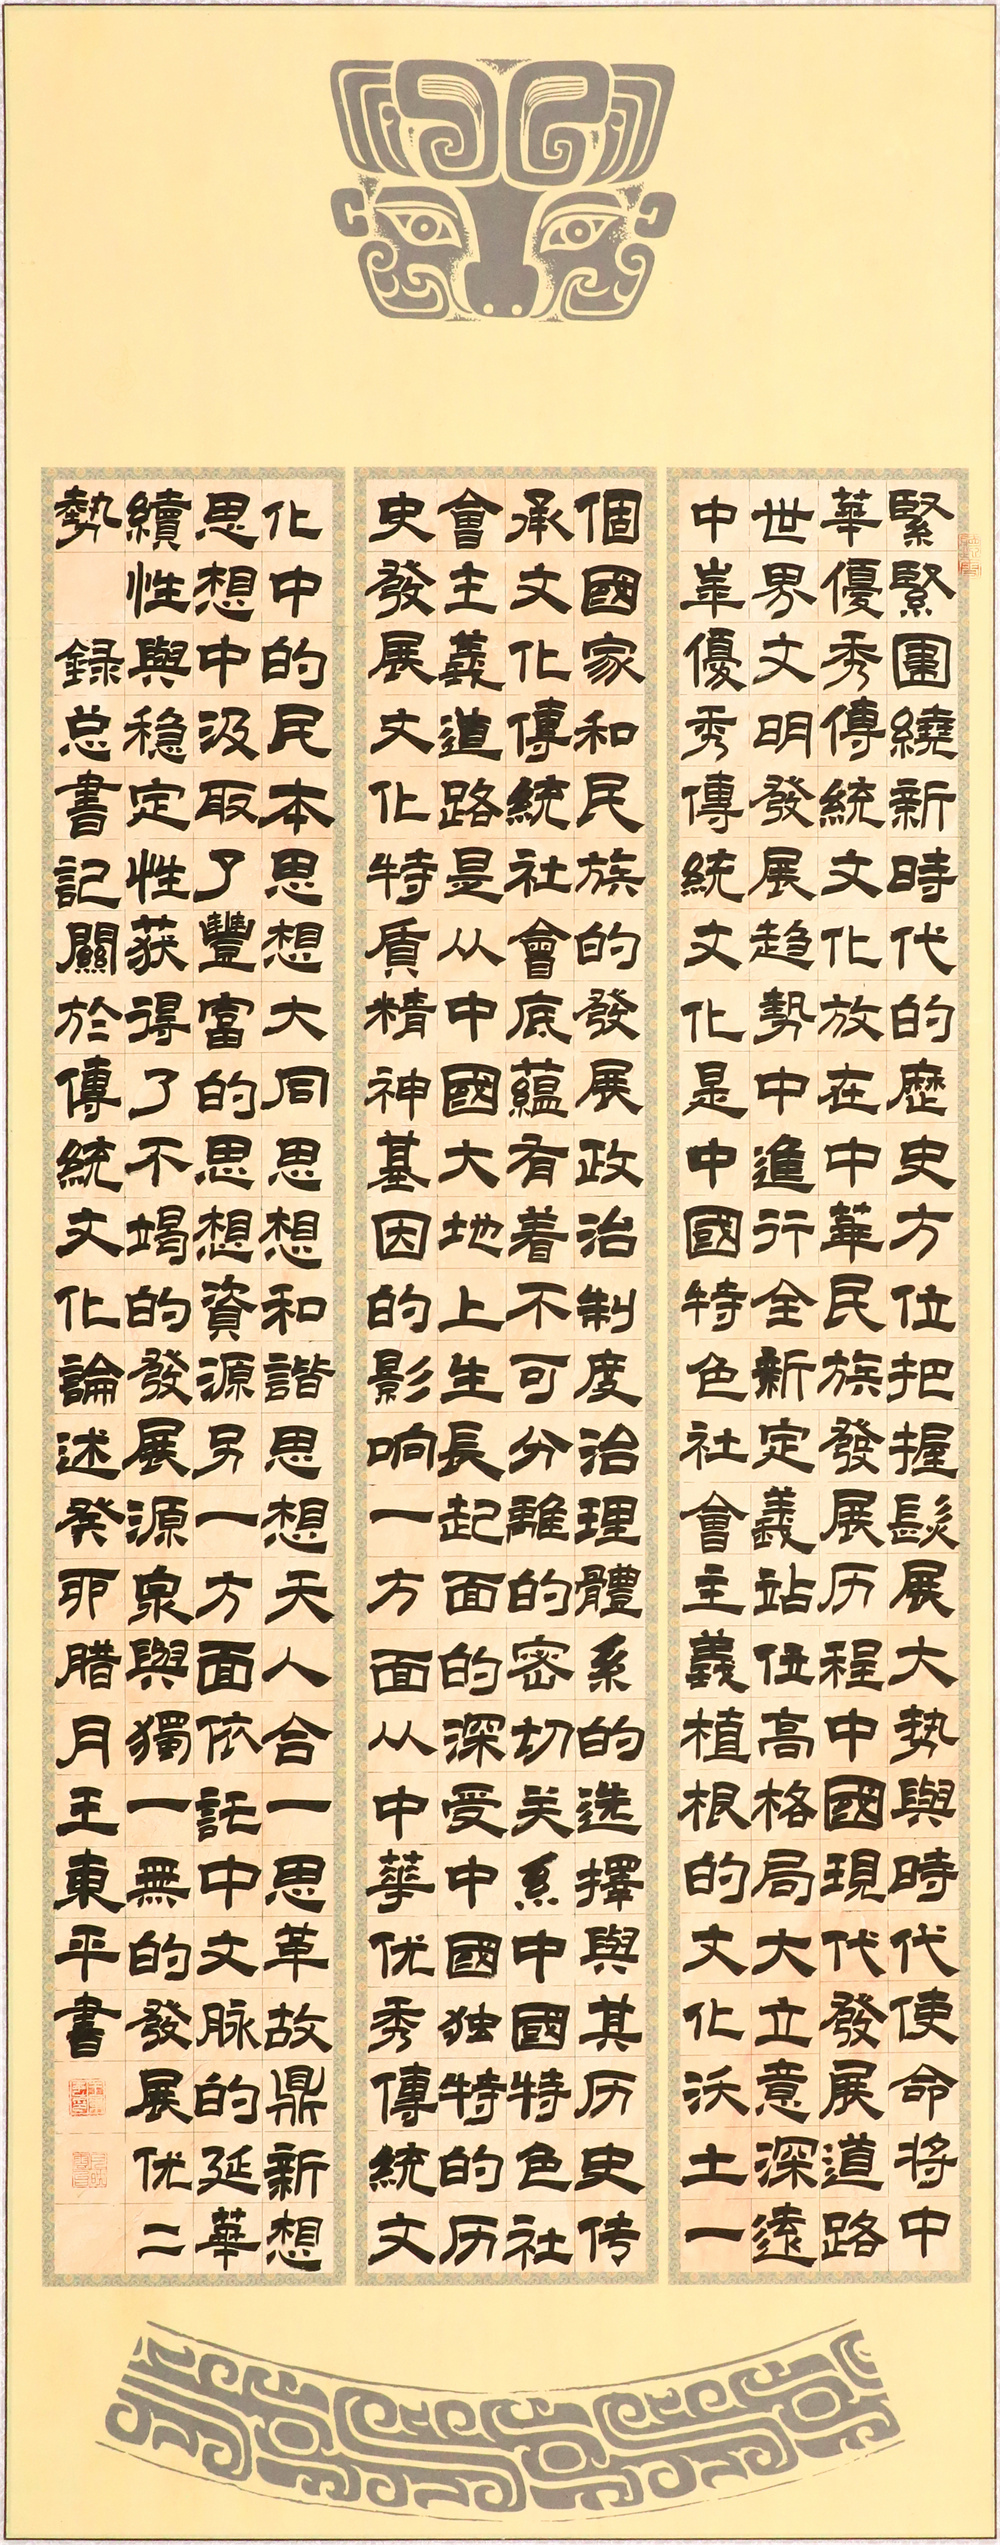 緊緊圍繞新時代的歷史方位把握髮展大势與時代使命将中
華優秀傳統文化放在中華民族發展历程中國現代發展道路
世界文明發展趋勢中進行全新定義站位高格局大立意深遠
中華優秀傳統文化是中國特色社會主義植根的文化沃土一
個國家和民族的發展政治制度治理體系的选擇與其历史传
承文化傳統社會底蘊有着不可分離的密切关系中國特色社
會主義道路是从中國大地上生長起面的深受中國独特的历
史發展文化特質精神基因的影响一方面从中華优秀傳統文
化中的民本思想大同思想和諧思想天人合一思革故鼎新想
思想中汲取了豐富的思想資源另一方面依託中文脉的延華
續性與稳定性获得了不竭的發展源泉與獨一無的發展优二
勢 録总書記關於傳統文化論述癸卯腊月王東平書